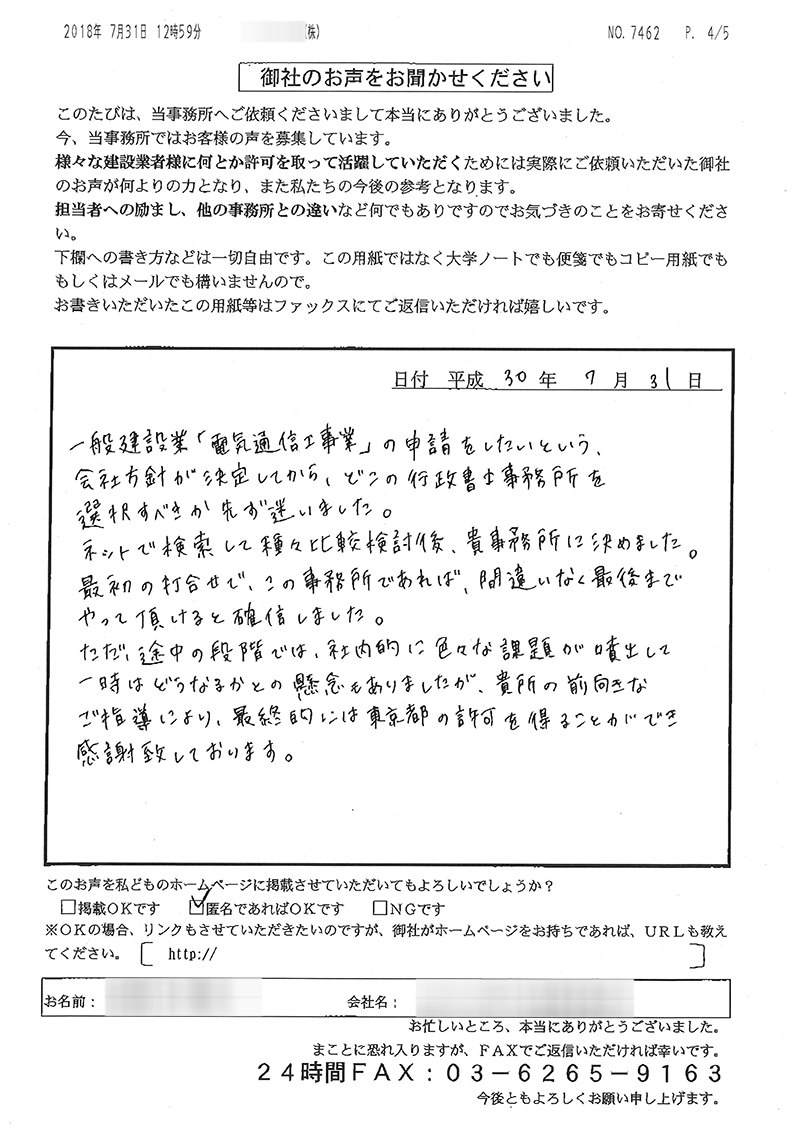 2018年 7月31日 12時59分 (株) NO. 7462 P. 4/5
御社のお声をお聞かせください
このたびは、当事務所へご依頼くださいまして本当にありがとうございました。
今、当事務所ではお客様の声を募集しています。
様々な建設業者様に何とか許可を取って活躍していただくためには実際にご依頼いただいた御社
のお声が何よりの力となり、また私たちの今後の参考となります。
担当者への励まし、他の事務所との違いなど何でもありですのでお気づきのことをお寄せくださ
い。
下欄への書き方などは一切自由です。この用紙ではなく大学ノートでも便箋でもコピー用紙でも
もしくはメールでも構いませんので。
お書きいただいたこの用紙等はファックスにてご返信いただければ嬉しいです。
日付 平成 30 年 7 月 31 日
一般建設業「電気通信工事業」の申請をしたいという、
会社方針が決定してから、どこの行政書士事務所を
選択すべきか先ず迷いました。
ネットで検索して種々比較検討後、貴事務所に決めました。
最初の打合せで、この事務所であれば、間違いなく最後まで
やって頂けると確信しました。
ただ、途中の段階では、社内的に色々な課題が噴出して
一時はどうなるかとの懸念もありましたが、貴所の前向きな
ご指導により、最終的には東京都の許可を得ることができ
感謝致しております。
このお声を私どものホームページに掲載させていただいてもよろしいでしょうか？
□掲載OKです ☑匿名であればOKです □NGです
※OKの場合、リンクもさせていただきたいのですが、御社がホームページをお持ちであれば、URLも教え
てください。 [ http:// ]
お名前： 会社名：
お忙しいところ、本当にありがとうございました。
まことに恐れ入りますが、FAXでご返信いただければ幸いです。
24時間FAX：03－6265－9163
今後ともよろしくお願い申し上げます。